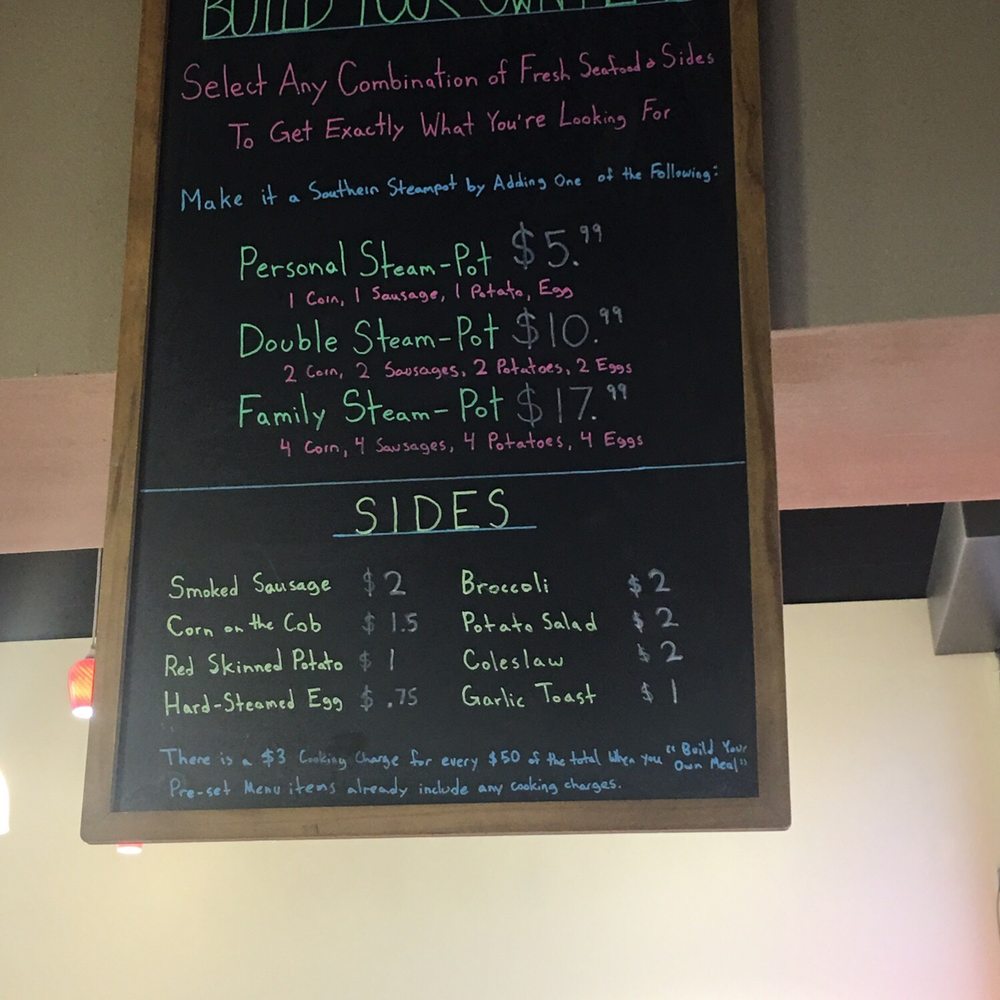 BUILD YOUR OWN
Select Any Combination of Fresh Seafood & Sides
To Get Exactly What You're Looking For
Make it a Southern Steampot by Adding One of the Following:
Personal Steam-Pot $5.99
1 Corn, 1 Sausage, 1 Potato, Egg
Double Steam-Pot $10.99
2 Corn, 2 Sausages, 2 Potatoes, 2 Eggs
Family Steam-Pot $17.99
4 Corn, 4 Sausages, 4 Potatoes, 4 Eggs
SIDES
Smoked Sausage $2 Broccoli $2
Corn on the Cob $1.5 Potato Salad $2
Red Skinned Potato $1 Coleslaw $2
Hard-Steamed Egg $.75 Garlic Toast $1
There is a $3 Cooking Charge for every $50 of the total When you "Build Your Own Meal"
Pre-set Menu items already include any cooking charges.